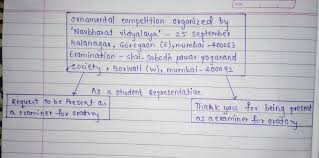 ornamental competition organized by
'Navbharat vidyalaya' - 25 september
Kalanagar, Goregaon (E), mumbai - 400063
Examination - shri. Subodh pawar Yoganand
society, Borivali (w), mumbai - 400092
As a student Representative
Request to be Present as
a examiner for oratory
Thank you for being present
as a examiner for oratory